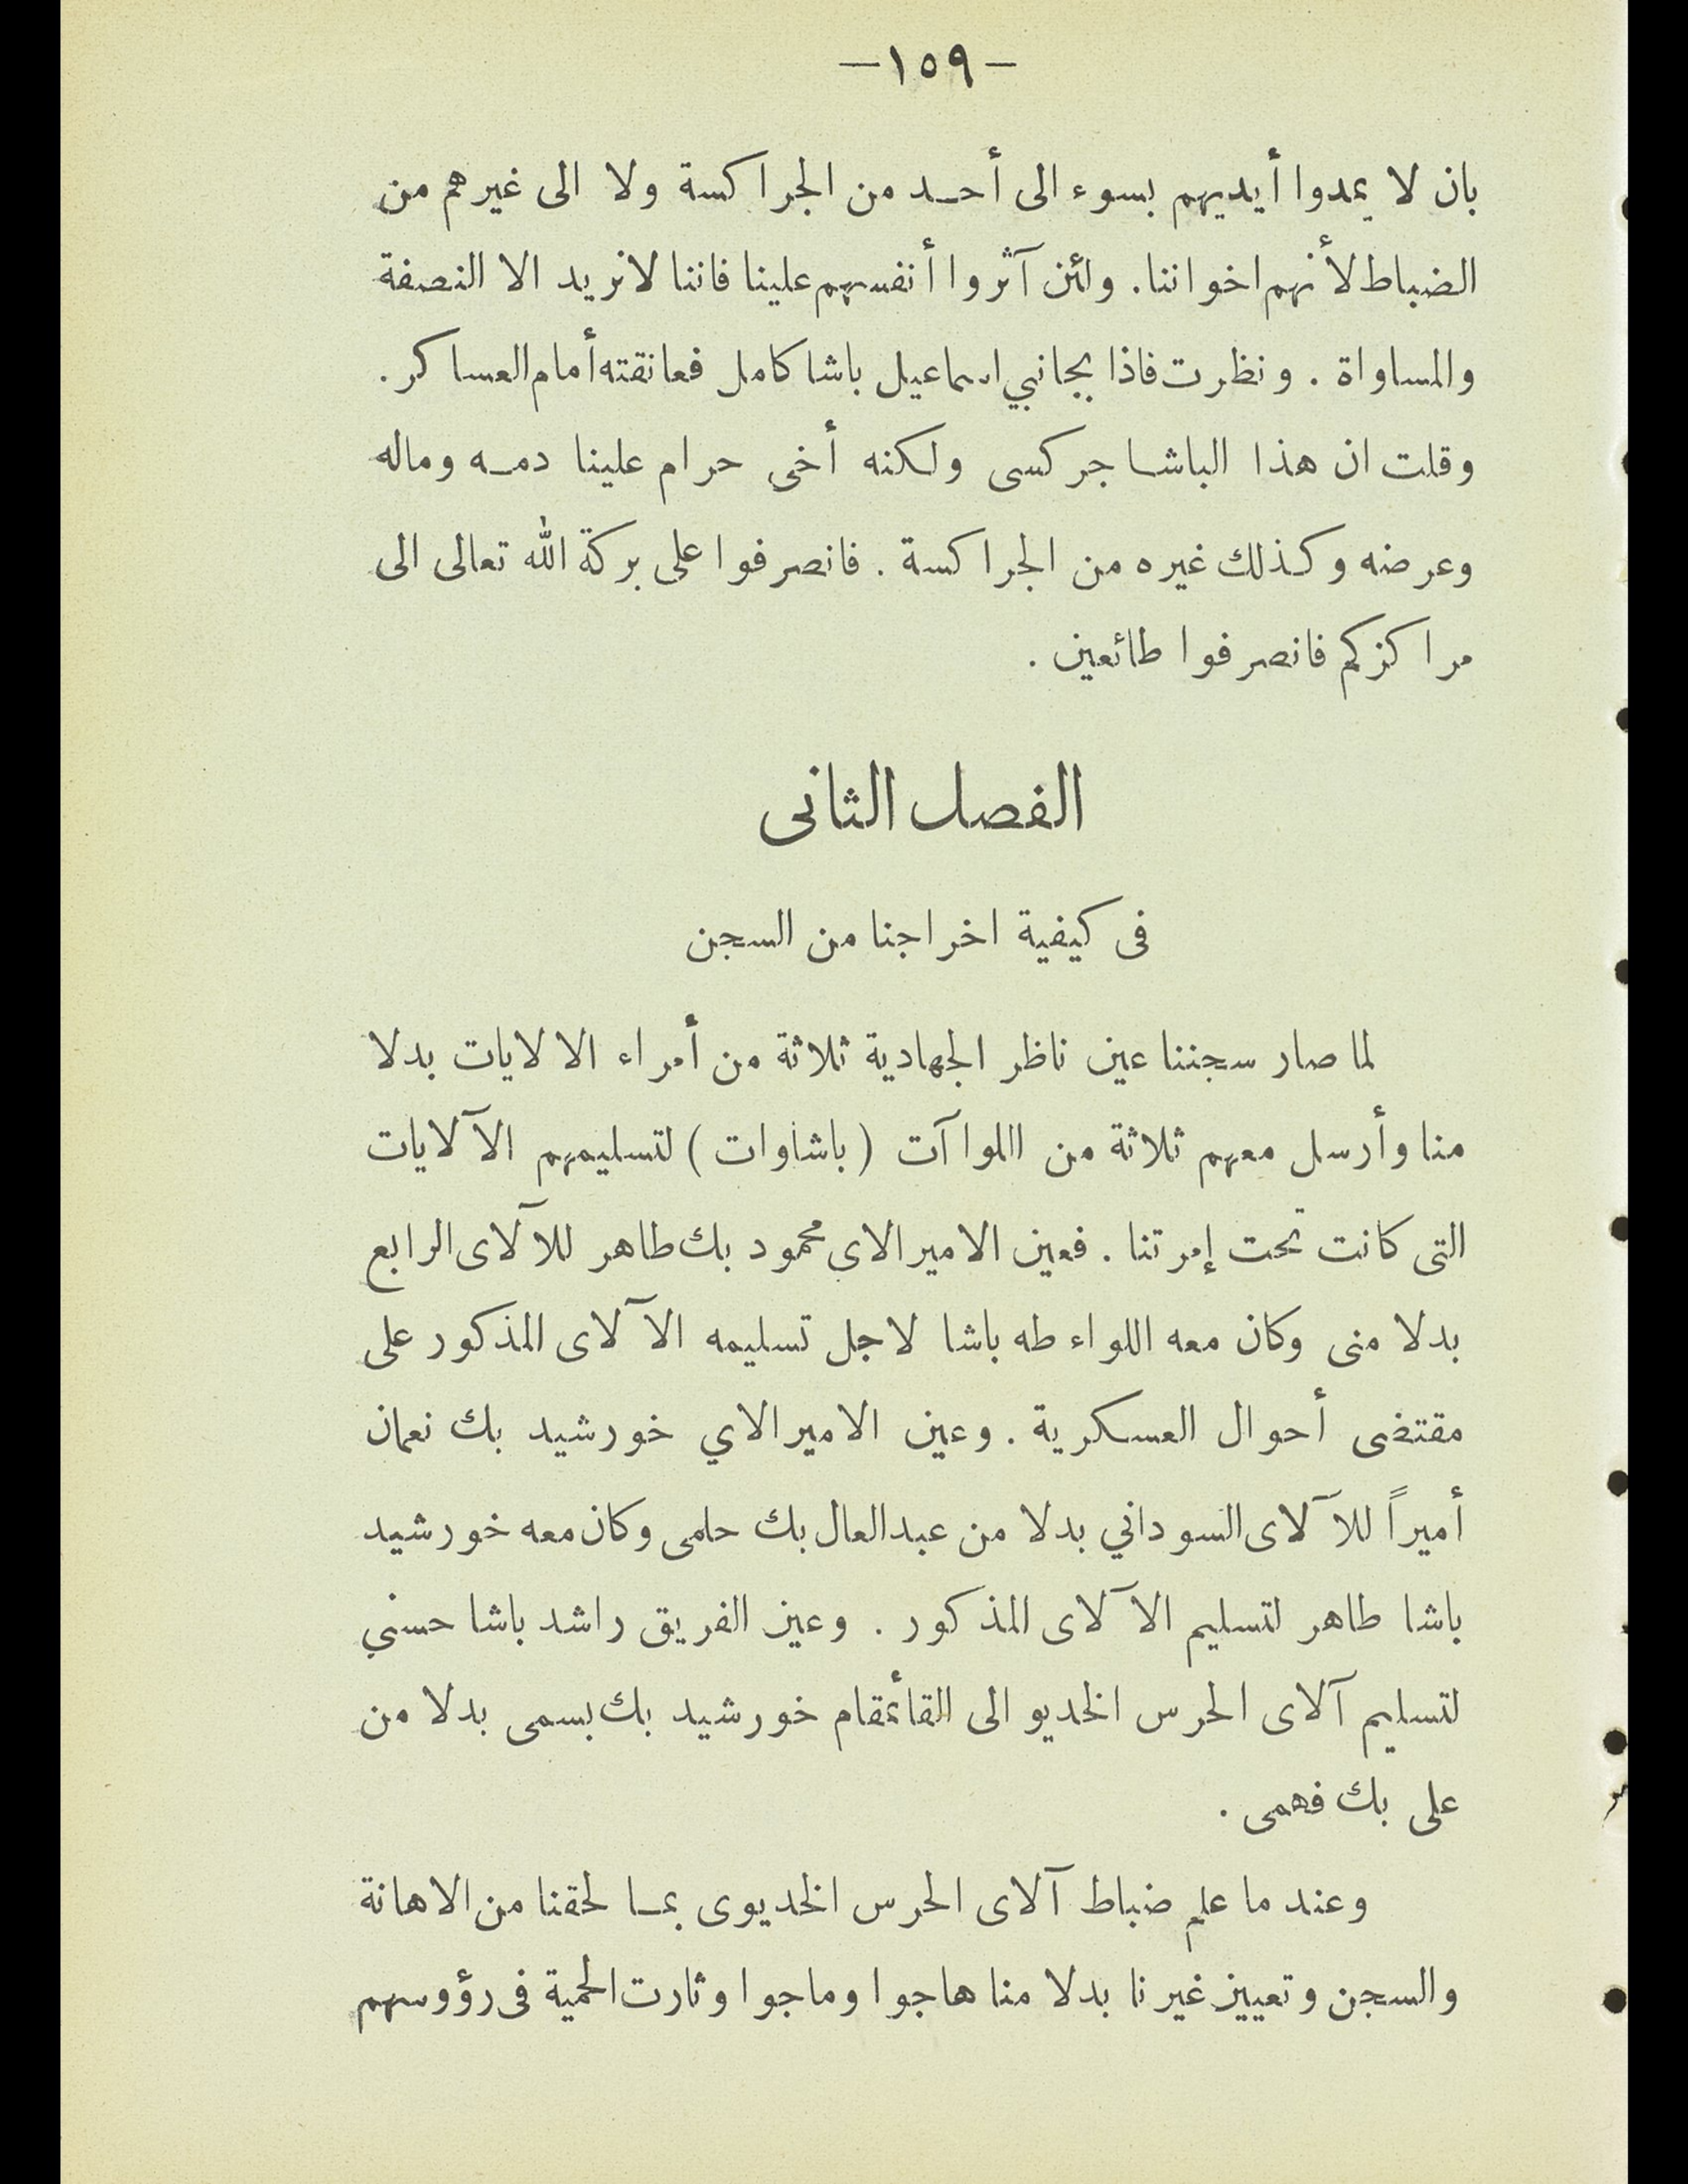 — ١٥٩ —
بان لا يمدوا أيديهم بسوء الى أحد من الجراكسة ولا الى غيرهم من
الضباط لأنهم اخواننا. ولئن آثروا أنفسهم علينا فاننا لا نريد الا النصفة
والمساواة . ونظرت فاذا بجانبي اسماعيل باشا كامل فعانقته أمام العساكر .
وقلت ان هذا الباشا جركسى ولكنه أخى حرام علينا دمه وماله
وعرضه وكذلك غيره من الجراكسة . فانصرفوا على بركة الله تعالى الى
مراكزكم فانصرفوا طائعين .
الفصل الثانى
فى كيفية اخراجنا من السجن
لما صار سجننا عين ناظر الجهادية ثلاثة من أمراء الالايات بدلا
منا وأرسل معهم ثلاثة من االلواآت ( باشاوات ) لتسليمهم الآلايات
التى كانت تحت إمرتنا . فعين الاميرالاى محمود بك طاهر للآلاى الرابع
بدلا منى وكان معه اللواء طه باشا لاجل تسليمه الآلاى المذكور على
مقتضى أحوال العسكرية . وعين الاميرالاي خورشيد بك نعمان
أميراً للآلاى السوداني بدلا من عبدالعال بك حلمى وكان معه خورشيد
باشا طاهر لتسليم الآلاى المذكور . وعين الفريق راشد باشا حسني
لتسليم آلاى الحرس الخديو الى القأئمقام خورشيد بك بسمى بدلا من
على بك فهمى .
وعند ما علم ضباط آلاى الحرس الخديوى بما لحقنا من الاهانة
والسجن وتعيين غيرنا بدلا منا هاجوا وماجوا وثارت الحمية فى رؤوسهم